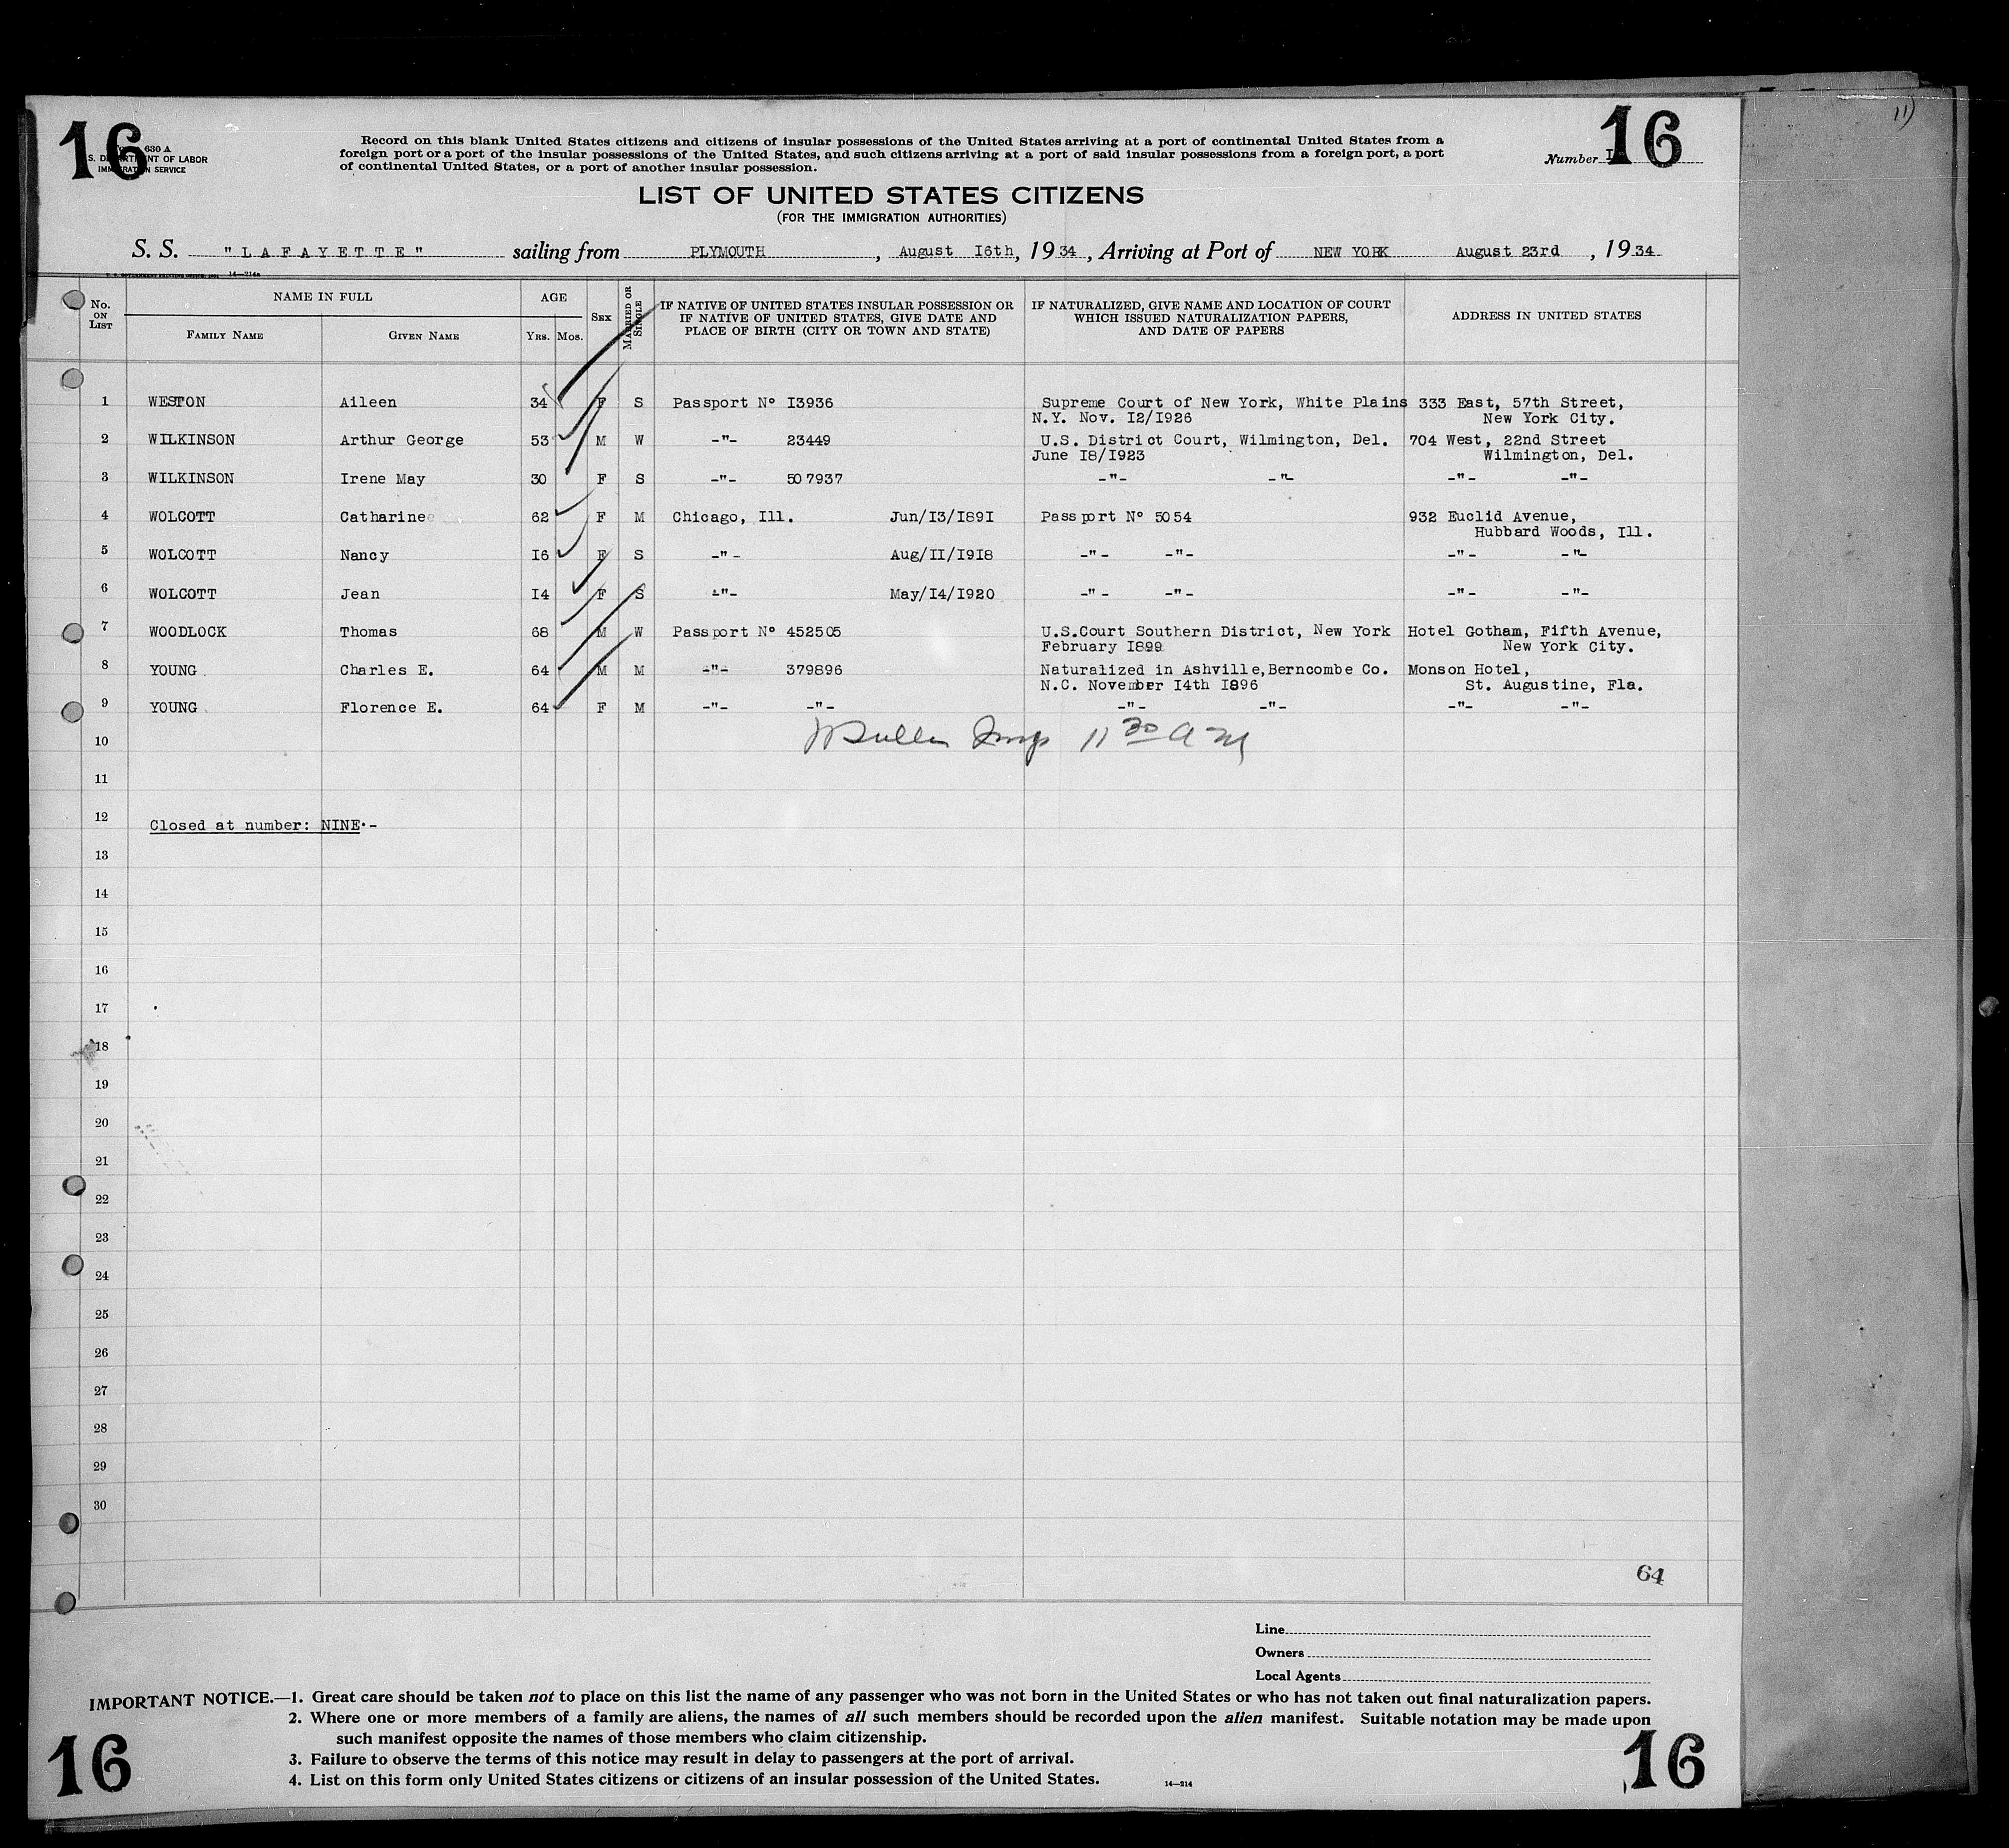 11)
16 16
Form 630 A
U.S. DEPARTMENT OF LABOR
IMMIGRATION SERVICE
Record on this blank United States citizens and citizens of insular possessions of the United States arriving at a port of continental United States from a
foreign port or a port of the insular possessions of the United States, and such citizens arriving at a port of said insular possessions from a foreign port, a port
of continental United States, or a port of another insular possession.
Number
LIST OF UNITED STATES CITIZENS
(FOR THE IMMIGRATION AUTHORITIES)
S. S. "LAFAYETTE" sailing from PLYMOUTH, August I6th, 1934, Arriving at Port of NEW YORK August 23rd, 1934
14—214a
No. ON LIST
NAME IN FULL
FAMILY NAME GIVEN NAME
AGE
YRS. MOS.
SEX
MARRIED OR SINGLE
IF NATIVE OF UNITED STATES INSULAR POSSESSION OR
IF NATIVE OF UNITED STATES, GIVE DATE AND
PLACE OF BIRTH (CITY OR TOWN AND STATE)
IF NATURALIZED, GIVE NAME AND LOCATION OF COURT
WHICH ISSUED NATURALIZATION PAPERS,
AND DATE OF PAPERS
ADDRESS IN UNITED STATES
1 WESTON Aileen 34 F S Passport Nº I3936 Supreme Court of New York, White Plains 333 East, 57th Street,
N.Y. Nov. I2/I926 New York City.
2 WILKINSON Arthur George 53 M W -"- 23449 U.S. District Court, Wilmington, Del. 704 West, 22nd Street
June I8/I923 Wilmington, Del.
3 WILKINSON Irene May 30 F S -"- 507937 -"- -"- -"- -"-
4 WOLCOTT Catharine 62 F M Chicago, Ill. Jun/I3/I89I Passport Nº 5054 932 Euclid Avenue,
Hubbard Woods, Ill.
5 WOLCOTT Nancy I6 F S -"- Aug/II/I9I8 -"- -"- -"- -"-
6 WOLCOTT Jean I4 F S -"- May/I4/I920 -"- -"- -"- -"-
7 WOODLOCK Thomas 68 M W Passport Nº 452505 U.S.Court Southern District, New York Hotel Gotham, Fifth Avenue,
February I899 New York City.
8 YOUNG Charles E. 64 M M -"- 379896 Naturalized in Ashville,Berncombe Co. Monson Hotel,
N.C. November I4th I896 St. Augustine, Fla.
9 YOUNG Florence E. 64 F M -"- -"- -"- -"- -"- -"-
10 11 30 AM
11
12 Closed at number: NINE.-
13
14
15
16
17
18
19
20
21
22
23
24
25
26
27
28
29
30
64
Line
Owners
Local Agents
IMPORTANT NOTICE.—1. Great care should be taken not to place on this list the name of any passenger who was not born in the United States or who has not taken out final naturalization papers.
2. Where one or more members of a family are aliens, the names of all such members should be recorded upon the alien manifest. Suitable notation may be made upon
such manifest opposite the names of those members who claim citizenship.
3. Failure to observe the terms of this notice may result in delay to passengers at the port of arrival.
4. List on this form only United States citizens or citizens of an insular possession of the United States.
14—214
16 16